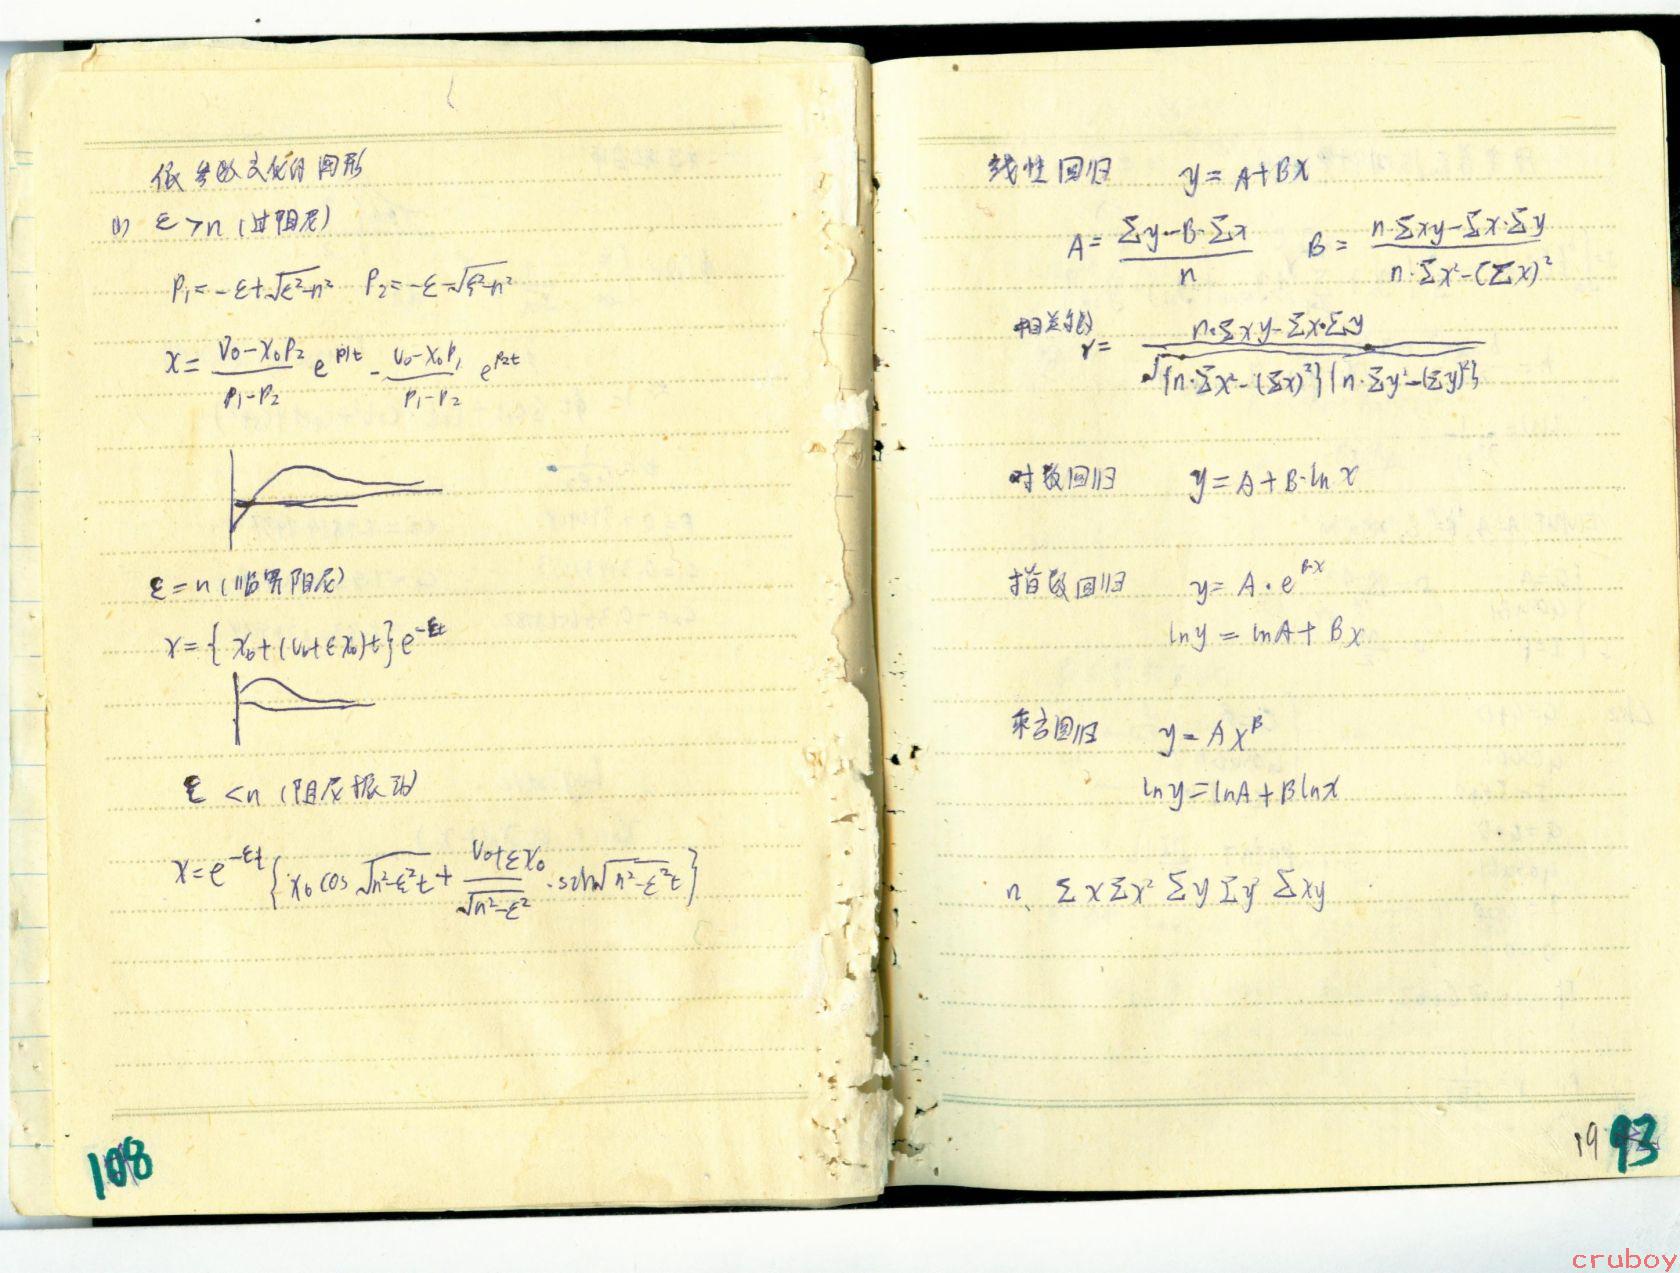 依参数变化的图形
(1) ε>n (过阻尼)
P₁=-ε+√(ε²-n²) P₂=-ε-√(ε²-n²)
x= (V₀-x₀P₂)/(P₁-P₂) e^(P₁t) - (V₀-x₀P₁)/(P₁-P₂) e^(P₂t)
ε=n (临界阻尼)
x={x₀+(V₀+εx₀)t}e^(-εt)
ε<n (阻尼振动)
x=e^(-εt){x₀cos√(n²-ε²)t + (V₀+εx₀)/√(n²-ε²)·sin√(n²-ε²)t}
108
线性回归 y=A+Bx
A= (Σy-B·Σx)/n B= (n·Σxy-Σx·Σy)/(n·Σx²-(Σx)²)
相关係数
r= (n·Σxy-Σx·Σy)/√({n·Σx²-(Σx)²}{n·Σy²-(Σy)²})
对数回归 y=A+B·lnx
指数回归 y=A·e^(B·x)
lny=lnA+Bx
乘方回归 y=Ax^B
lny=lnA+Blnx
n、Σx Σx² Σy Σy² Σxy
19 93
cruboy